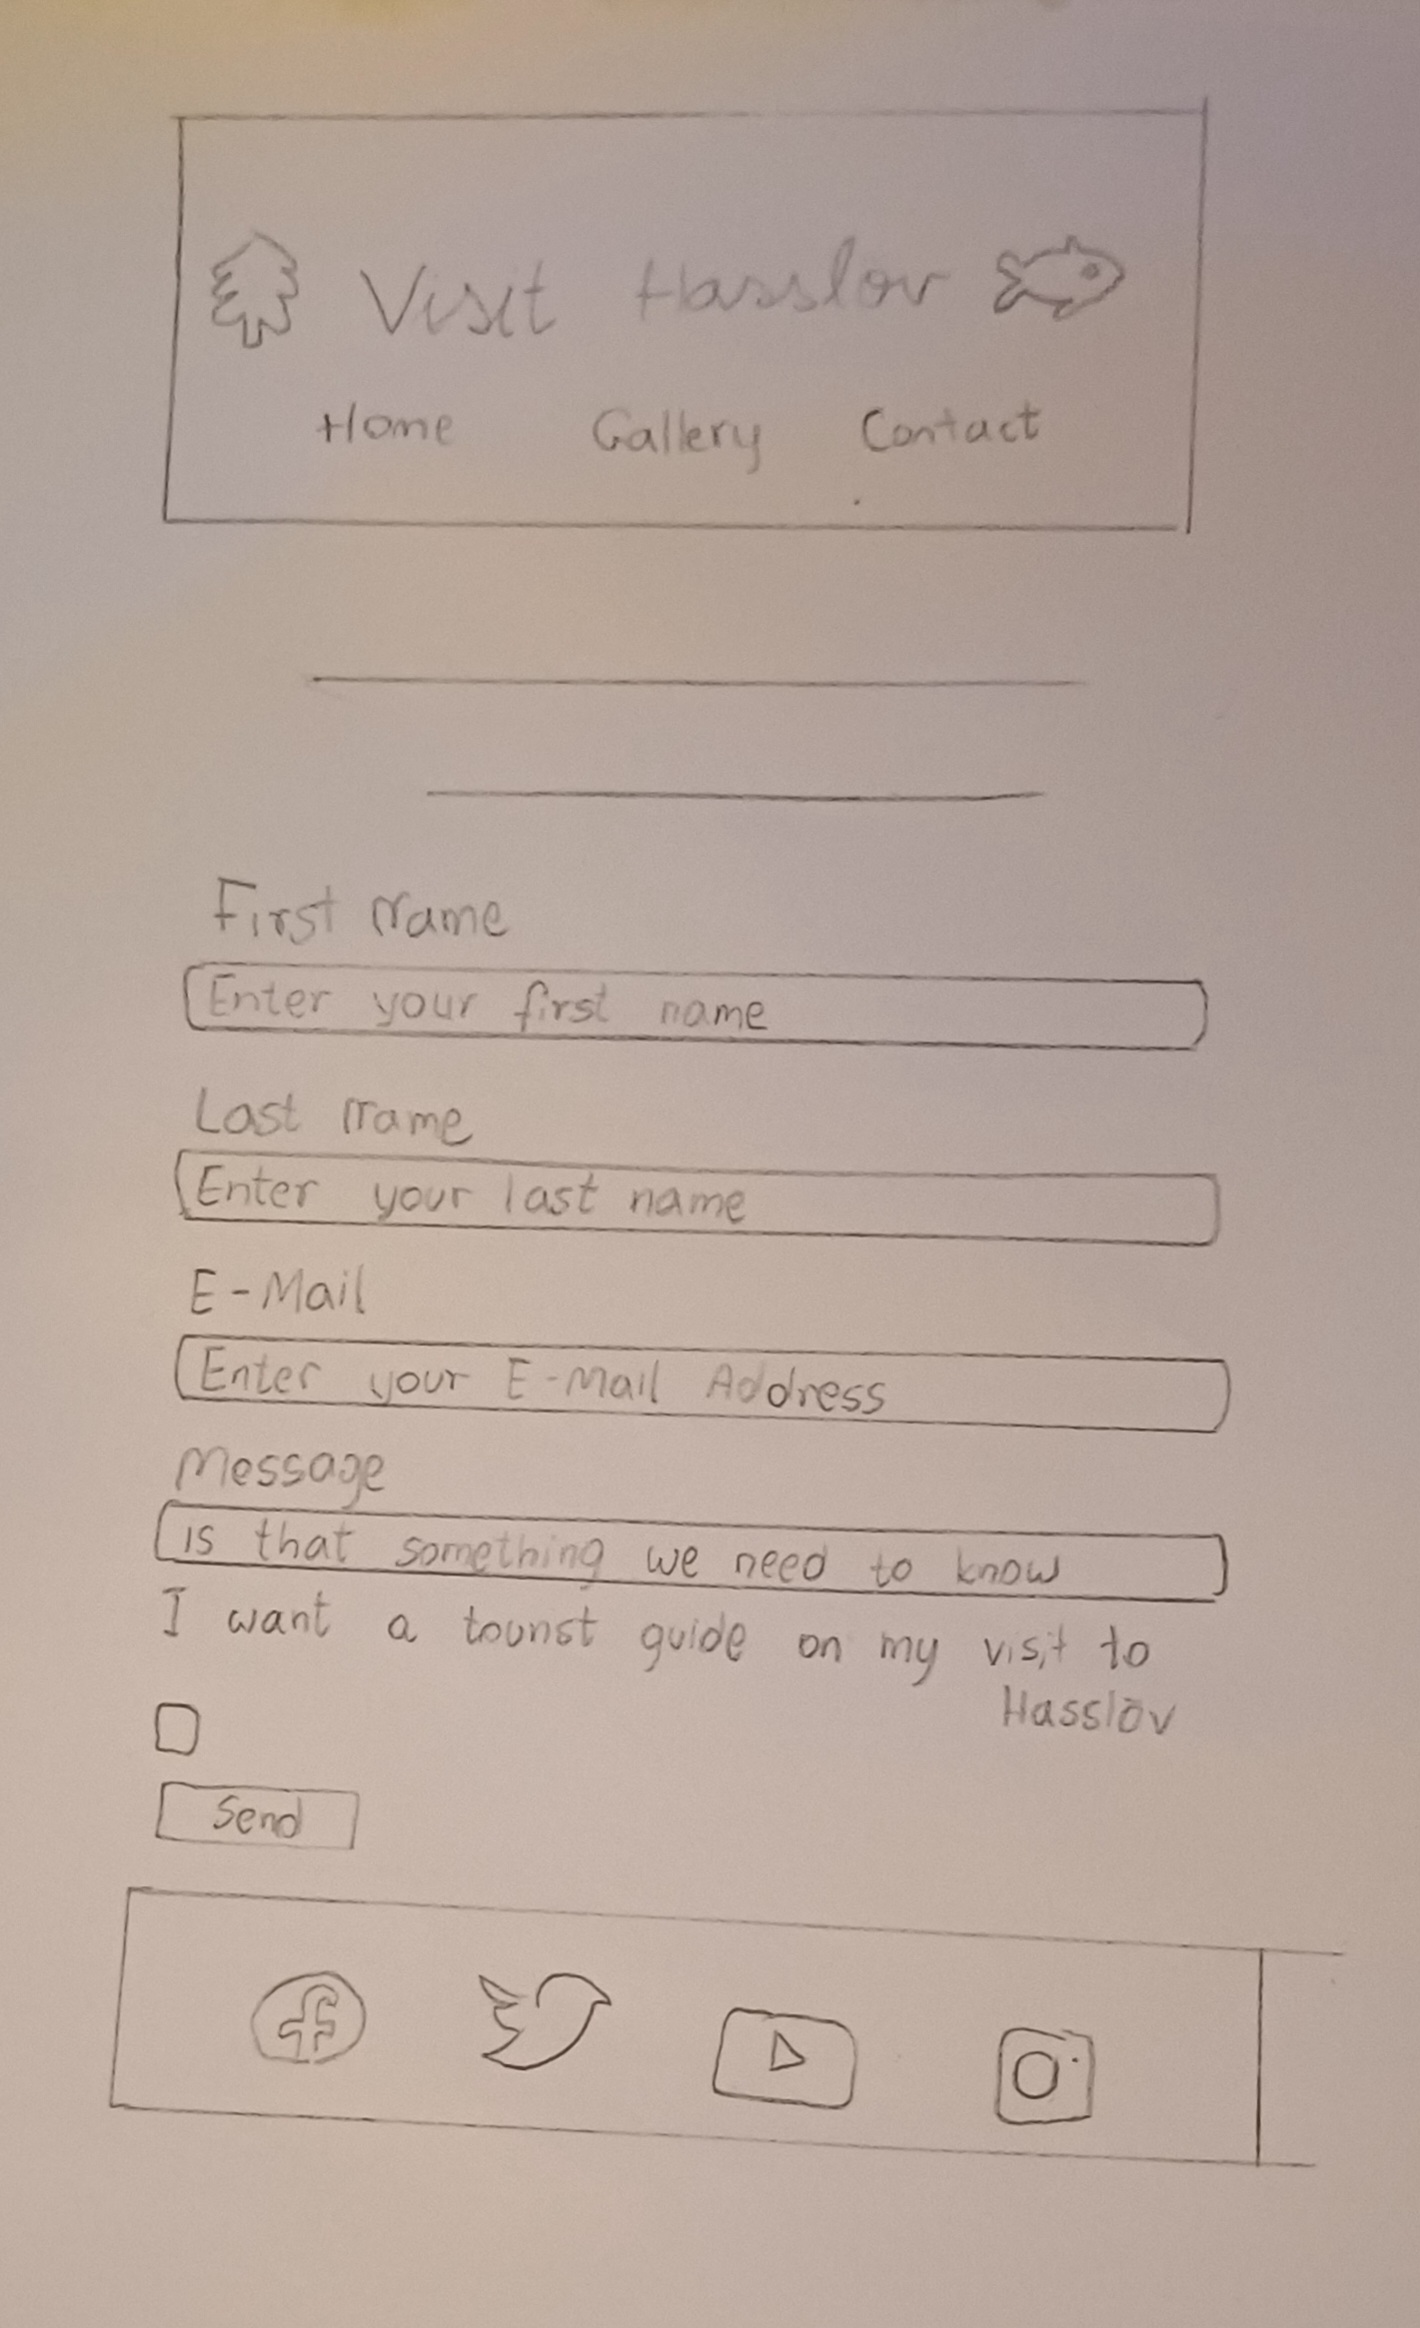 Visit Hasslov
Home Gallery Contact
First Name
Enter your first name
Last Name
Enter your last name
E-Mail
Enter your E-Mail Address
Message
is that something we need to know
I want a tourist guide on my visit to
Hasslöv
Send
f